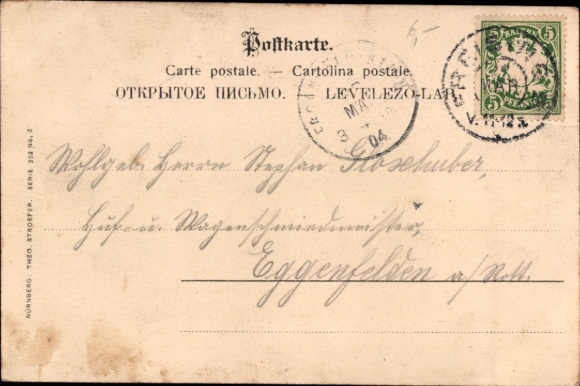 6,-
Postkarte.
Carte postale. — Cartolina postale.
ОТКРЫТОЕ ПИСЬМО. — LEVELEZÖ-LAP.
BAYERN
5 5
PFENNIG
V. 11-12
MAI
3
04
Wohlgeb. Herrn Stephan Glosehuber,
Huf- u. Wagenschmiedmeister,
Eggenfelden a/Rott.
NÜRNBERG: THEO. STROEFER. SERIE 302 No. 3